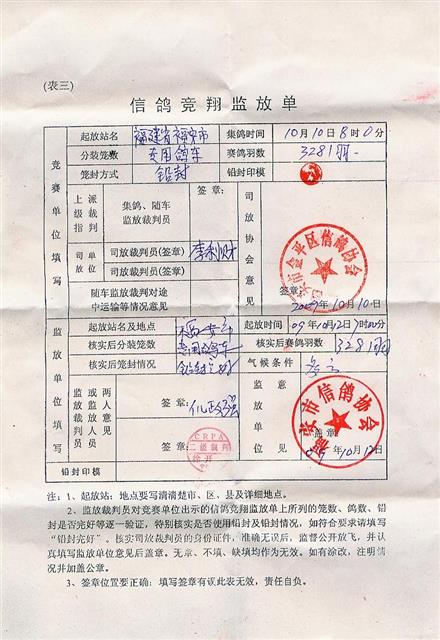 (表三)
信鸽竞翔监放单
竞赛单位填写
起放站名 福建省福安市 集鸽时间 10月10日8时0分
分装笼数 专用鸽车 赛鸽羽数 3281羽
笼封方式 铅封 铅封印模
上级指派裁判 集鸽、随车监放裁判员 签章:
司放单位 司放裁判员(签章) 李利财
司放裁判员(签章)
随车监放裁判对途中运输等情况意见
司放协会意见
市金平区信鸽协会
签章:
2009年10月10日
监放单位填写
起放站名及地点 起放时间 09年10月12日7时00分
核实后分装笼数 专用鸽车 核实后赛鸽羽数 3281羽
核实后笼封情况 铅封完好 气候条件
监放裁判员或两人或两人以上见意 签章:
签章:
CRPA
二级裁判
监放单位意见
福安市信鸽协会
盖章:
09年10月12日
铅封印模
注:1、起放站:地点要写清清楚市、区、县及详细地点。
2、监放裁判员对竞赛单位出示的信鸽竞翔监放单上所列的笼数、鸽数、铅
封是否完好等逐一验证,特别核实是否使用铅封及铅封情况,如符合要求请填写
“铅封完好”。核实司放裁判员的身份证件,准确无误后,监督公开放飞,并认
真填写监放单位意见后盖章。无章、不填、缺填均作为无效。如有涂改,注明情
况并加盖公章。
3、签章位置要正确:填写签章有误此表无效,责任自负。